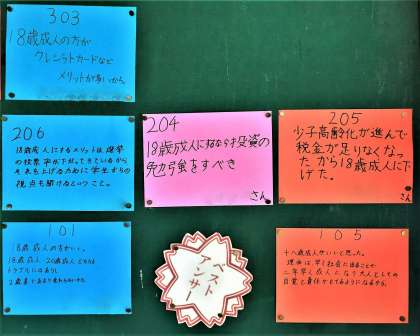 303
18歳成人の方が
クレジットカードなど
メリットが多いから
206
18歳成人にするメリットは選挙
の投票率が下がってきているから
それを上げるために学生からの
視点も聞けるということ。
204
18歳成人にするならば投資の
勉強をすべき
さん
205
少子高齢化が進んで
税金が足りなくなっ
たから18歳成人に下
げた。
さん
101
18歳成人の方がいい。
18歳成人・20歳成人どちらも
トラブルにのあり
2歳差じゃあまり変わらないから
ベスト
アンサー
105
十八歳成人がいいと思った。
理由は早く社会に出ることや
二年早く成人になり大人としての
自覚と責任がもてるようになるから。